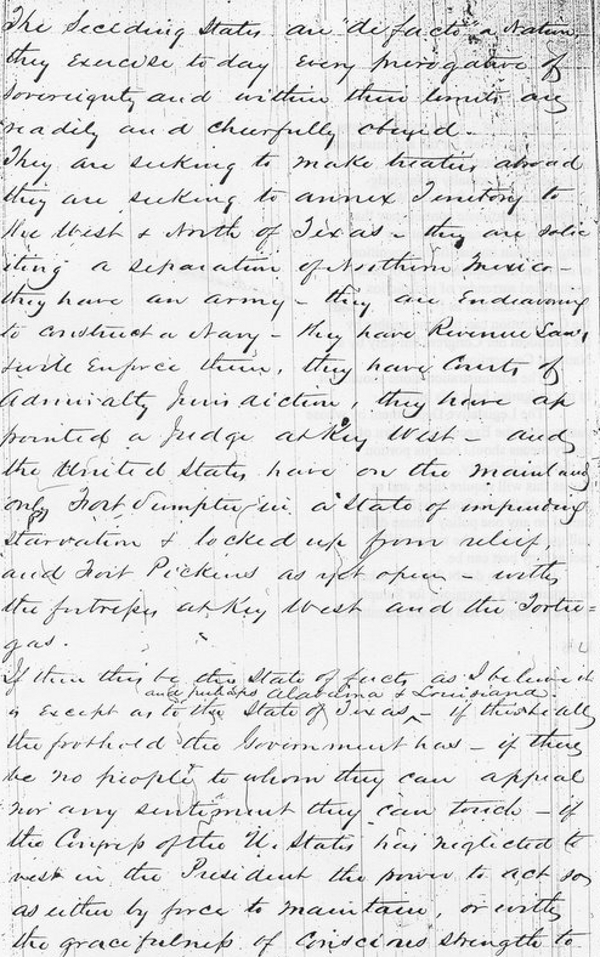 The Seceding States are "de facto" a Nation,
they exercise to day every prerogative of
Sovereignty and within their limits are
readily and cheerfully obeyed.
They are seeking to make treaties abroad
they are seeking to annex Territory to
the West & North of Texas - they are solic
iting a separation of Northern Mexico -
they have an army - they are endeavoring
to construct a Navy - they have Revenue Laws
& will Enforce them, they have Courts of
Admiralty Jurisdiction, they have ap
pointed a Judge at Key West - and
the United States have on the mainland
only Fort Sumpter in a State of impending
starvation & locked up from relief,
and Fort Pickens as yet open - with
the fortresses at Key West and the Tortu=
gas.
If then this be the State of facts as I believe it
and perhaps Alabama & Louisiana.
is except as to the State of Texas - if this be all
the foothold the Government has - if there
be no people to whom they can appeal
nor any sentiment they can touch - if
the Congress of the U. States has neglected to
vest in the President the power to act so
as either by force to maintain, or with
the gracefulness of conscious strength to